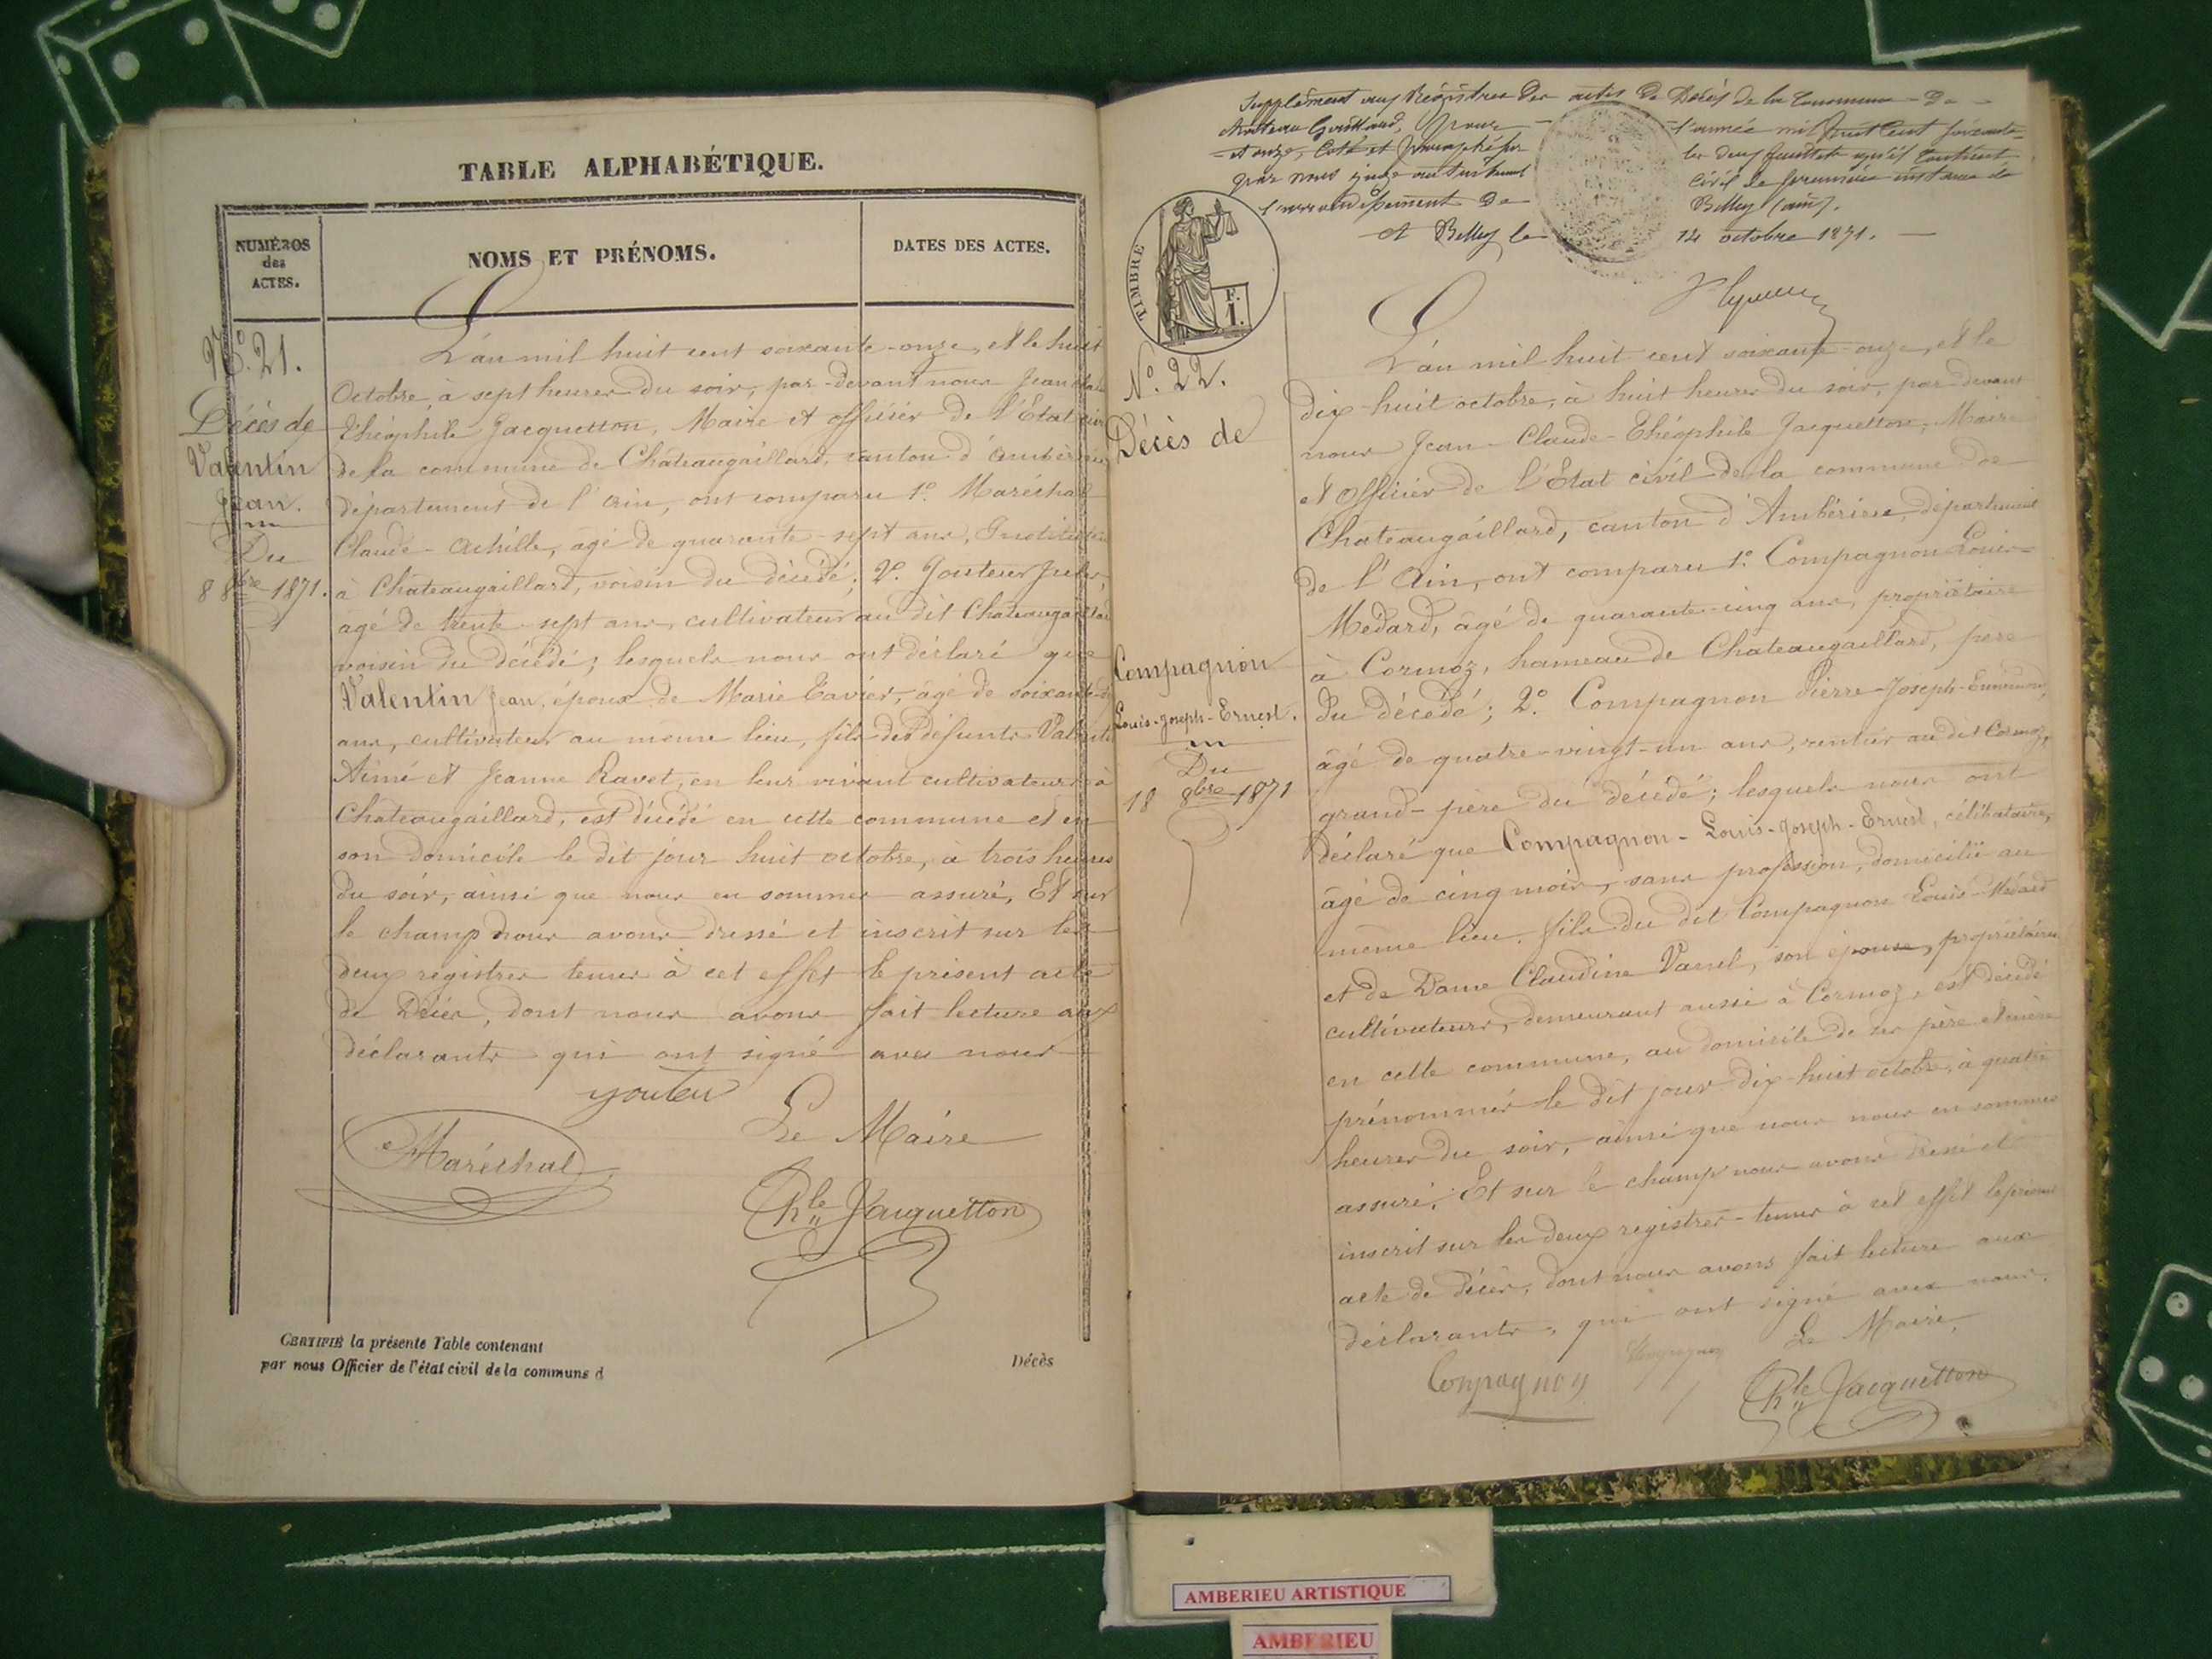 TABLE ALPHABÉTIQUE.
NUMÉROS
des
ACTES.
NOMS ET PRÉNOMS.
DATES DES ACTES.
N.° 21.
Décès de
Valentin
Jean.
Du
8 8bre 1871.
L'an mil huit cent soixante-onze, et le huit
Octobre, à sept heures du soir, par-devant nous Jean
Théophile Jacquetton, Maire et officier de l'Etat
de la commune de Chateaugaillard, canton d'Ambérieu
département de l'Ain, ont comparu 1.° Maréchal
Claude-Achille, âgé de quarante-sept ans, Instituteur
à Chateaugaillard, voisin du décédé; 2.° Jouteur Jules,
âgé de trente-sept ans, cultivateur au dit Chateaugaillard
voisin du décédé; lesquels nous ont déclaré que
Valentin Jean, époux de Marie Tavier, âgé de
ans, cultivateur au même lieu, fils des défunts
Aimé et Jeanne Ravet, en leur vivant cultivateurs à
Chateaugaillard, est décédé en cette commune et en
son domicile le dit jour huit octobre, à trois heures
du soir, ainsi que nous en sommes assuré, Et sur
le champ nous avons dressé et inscrit sur les
deux registres tenus à cet effet le présent acte
de Décès, dont nous avons fait lecture aux
déclarants qui ont signé avec nous
Le Maire
Maréchal
Jacquetton
CERTIFIÉ la présente Table contenant
par nous Officier de l'état civil de la commune d
Décès
Supplément aux Registres des actes de Décès de la Commune de
Château Gaillard, pour l'année mil huit cent soixante
et onze, Coté et paraphé par les deux feuillets qu'il contient
par nous juge au tribunal civil de première instance de
l'arrondissement de Belley (ain).
A Belley le 14 octobre 1871.
TIMBRE
F.
1.
N.° 22.
Décès de
Compagnon
Louis-Joseph-Ernest.
Du
18 8bre 1871
L'an mil huit cent soixante-onze, et le
dix-huit octobre, à huit heures du soir, par devant
nous Jean-Claude-Théophile Jacquetton, Maire
et Officier de l'Etat civil de la commune de
Chateaugaillard, canton d'Ambérieu, département
de l'Ain, ont comparu 1.° Compagnon Louis-
Médard, âgé de quarante-cinq ans, propriétaire
à Cormoz, hameau de Chateaugaillard, père
du décédé; 2.° Compagnon Pierre-Joseph
âgé de quatre-vingt-un ans, rentier au dit Cormoz,
grand-père du décédé; lesquels nous ont
déclaré que Compagnon-Louis-Joseph-Ernest, célibataire,
âgé de cinq mois, sans profession, domicilié au
même lieu, fils du dit Compagnon Louis-Médard
et de Dame Claudine son épouse, propriétaires
cultivateurs, demeurant aussi à Cormoz, est décédé
en cette commune, au domicile de ses père et mère
prénommés le dit jour dix-huit octobre, à quatre
heures du soir, ainsi que nous nous en sommes
assuré, Et sur le champ nous avons dressé et
inscrit sur les deux registres tenus à cet effet le présent
acte de décès, dont nous avons fait lecture aux
déclarants, qui ont signé avec nous.
Le Maire,
Compagnon
Jacquetton
AMBERIEU ARTISTIQUE
AMBERIEU